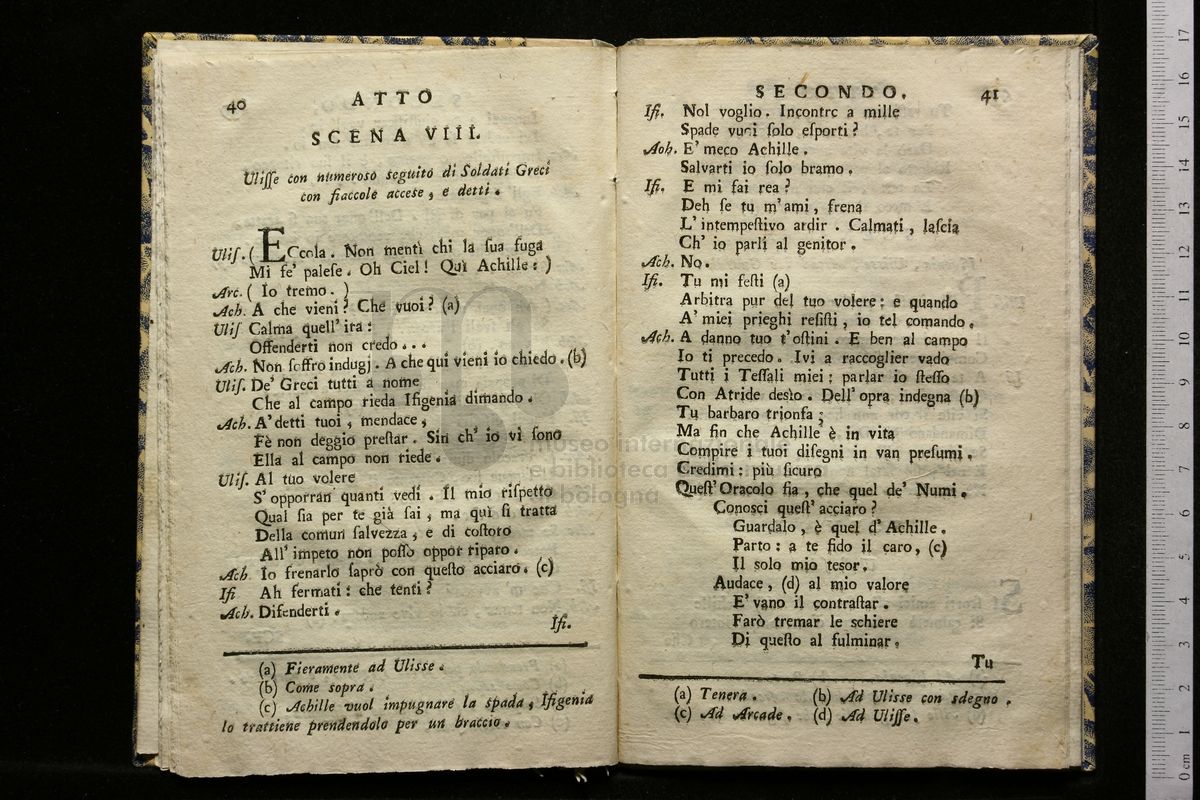 40
ATTO
SCENA VIII.
Ulisſe con numeroso seguito di Soldati Greci
con fiaccole accese, e detti.
Uliſ. (ECcola. Non mentì chi la ſua fuga
Mi fe' paleſe. Oh Ciel! Quì Achille: )
Arc. ( Io tremo. )
Ach. A che vieni? Che vuoi? (a)
Uliſ Calma quell' ira:
Offenderti non credo...
Ach. Non ſoffro indugj. A che qui vieni io chiedo. (b)
Uliſ. De' Greci tutti a nome
Che al campo rieda Ifigenia dimando.
Ach. A' detti tuoi, mendace,
Fè non deggio preſtar. Sin ch' io vi ſono
Ella al campo non riede.
Uliſ. Al tuo volere
S' opporran quanti vedi. Il mio riſpetto
Qual ſia per te già ſai, ma quì ſi tratta
Della comun ſalvezza, e di coſtoro
All' impeto non poſſo oppor riparo.
Ach. Io frenarlo ſaprò con queſto acciaro. (c)
Ifi Ah fermati: che tenti?
Ach. Difenderti.
Ifi.
(a) Fieramente ad Ulisse.
(b) Come sopra.
(c) Achille vuol impugnare la spada, Ifigenia
lo trattiene prendendolo per un braccio.
SECONDO.
41
Ifi. Nol voglio. Incontre a mille
Spade vuoi ſolo eſporti?
Aoh. E' meco Achille.
Salvarti io ſolo bramo.
Ifi. E mi fai rea?
Deh ſe tu m'ami, frena
L' intempeſtivo ardir. Calmati, laſcia
Ch' io parli al genitor.
Ach. No.
Ifi. Tu mi feſti (a)
Arbitra pur del tuo volere: e quando
A' miei prieghi reſiſti, io tel comando.
Ach. A danno tuo t'oſtini. E ben al campo
Io ti precedo. Ivi a raccoglier vado
Tutti i Teſſali miei: parlar io ſteſſo
Con Atride deſio. Dell' opra indegna (b)
Tu barbaro trionfa;
Ma fin che Achille è in vita
Compire i tuoi diſegni in van preſumi.
Credimi: più ſicuro
Queſt' Oracolo fia, che quel de' Numi.
Conosci queſt' acciaro?
Guardalo, è quel d' Achille.
Parto: a te fido il caro, (c)
Il solo mio tesor.
Audace, (d) al mio valore
E' vano il contraſtar.
Farò tremar le schiere
Di queſto al fulminar.
Tu
(a) Tenera. (b) Ad Ulisse con sdegno.
(c) Ad Arcade. (d) Ad Uliſſe.
museo internazionale
e biblioteca
bologna
0 cm 1 2 3 4 5 6 7 8 9 10 11 12 13 14 15 16 17